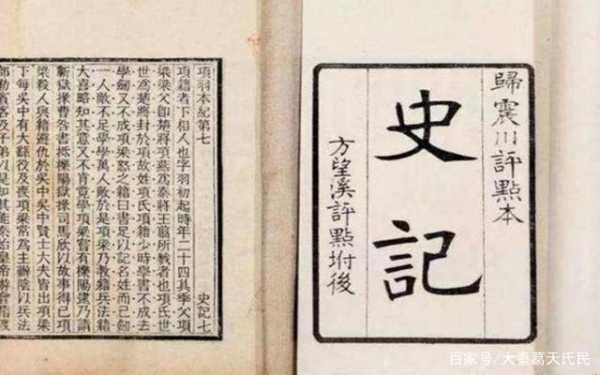 歸震川評點本
史記
方望溪評點坿後
史記七
項羽本紀第七
項籍者下相人也字羽初起時年二十四其季父項
梁梁父卽楚將項燕爲秦將王翦所戮者也項氏世
世爲楚將封於項故姓項氏項籍少時學書不成去
學劒又不成項梁怒之籍曰書足以記名姓而已劒
一人敵不足學學萬人敵於是項梁乃教籍兵法籍
大喜略知其意又不肯竟學項梁嘗有櫟陽逮乃請
蘄獄掾曹咎書抵櫟陽獄掾司馬欣以故事得已項
梁殺人與籍避仇於吳中吳中賢士大夫皆出項梁
下每吳中有大繇役及喪項梁常爲主辦陰以兵法
部勒賓客及子弟以是知其能秦始皇帝游會稽渡
百家号/大秦葛天氏民